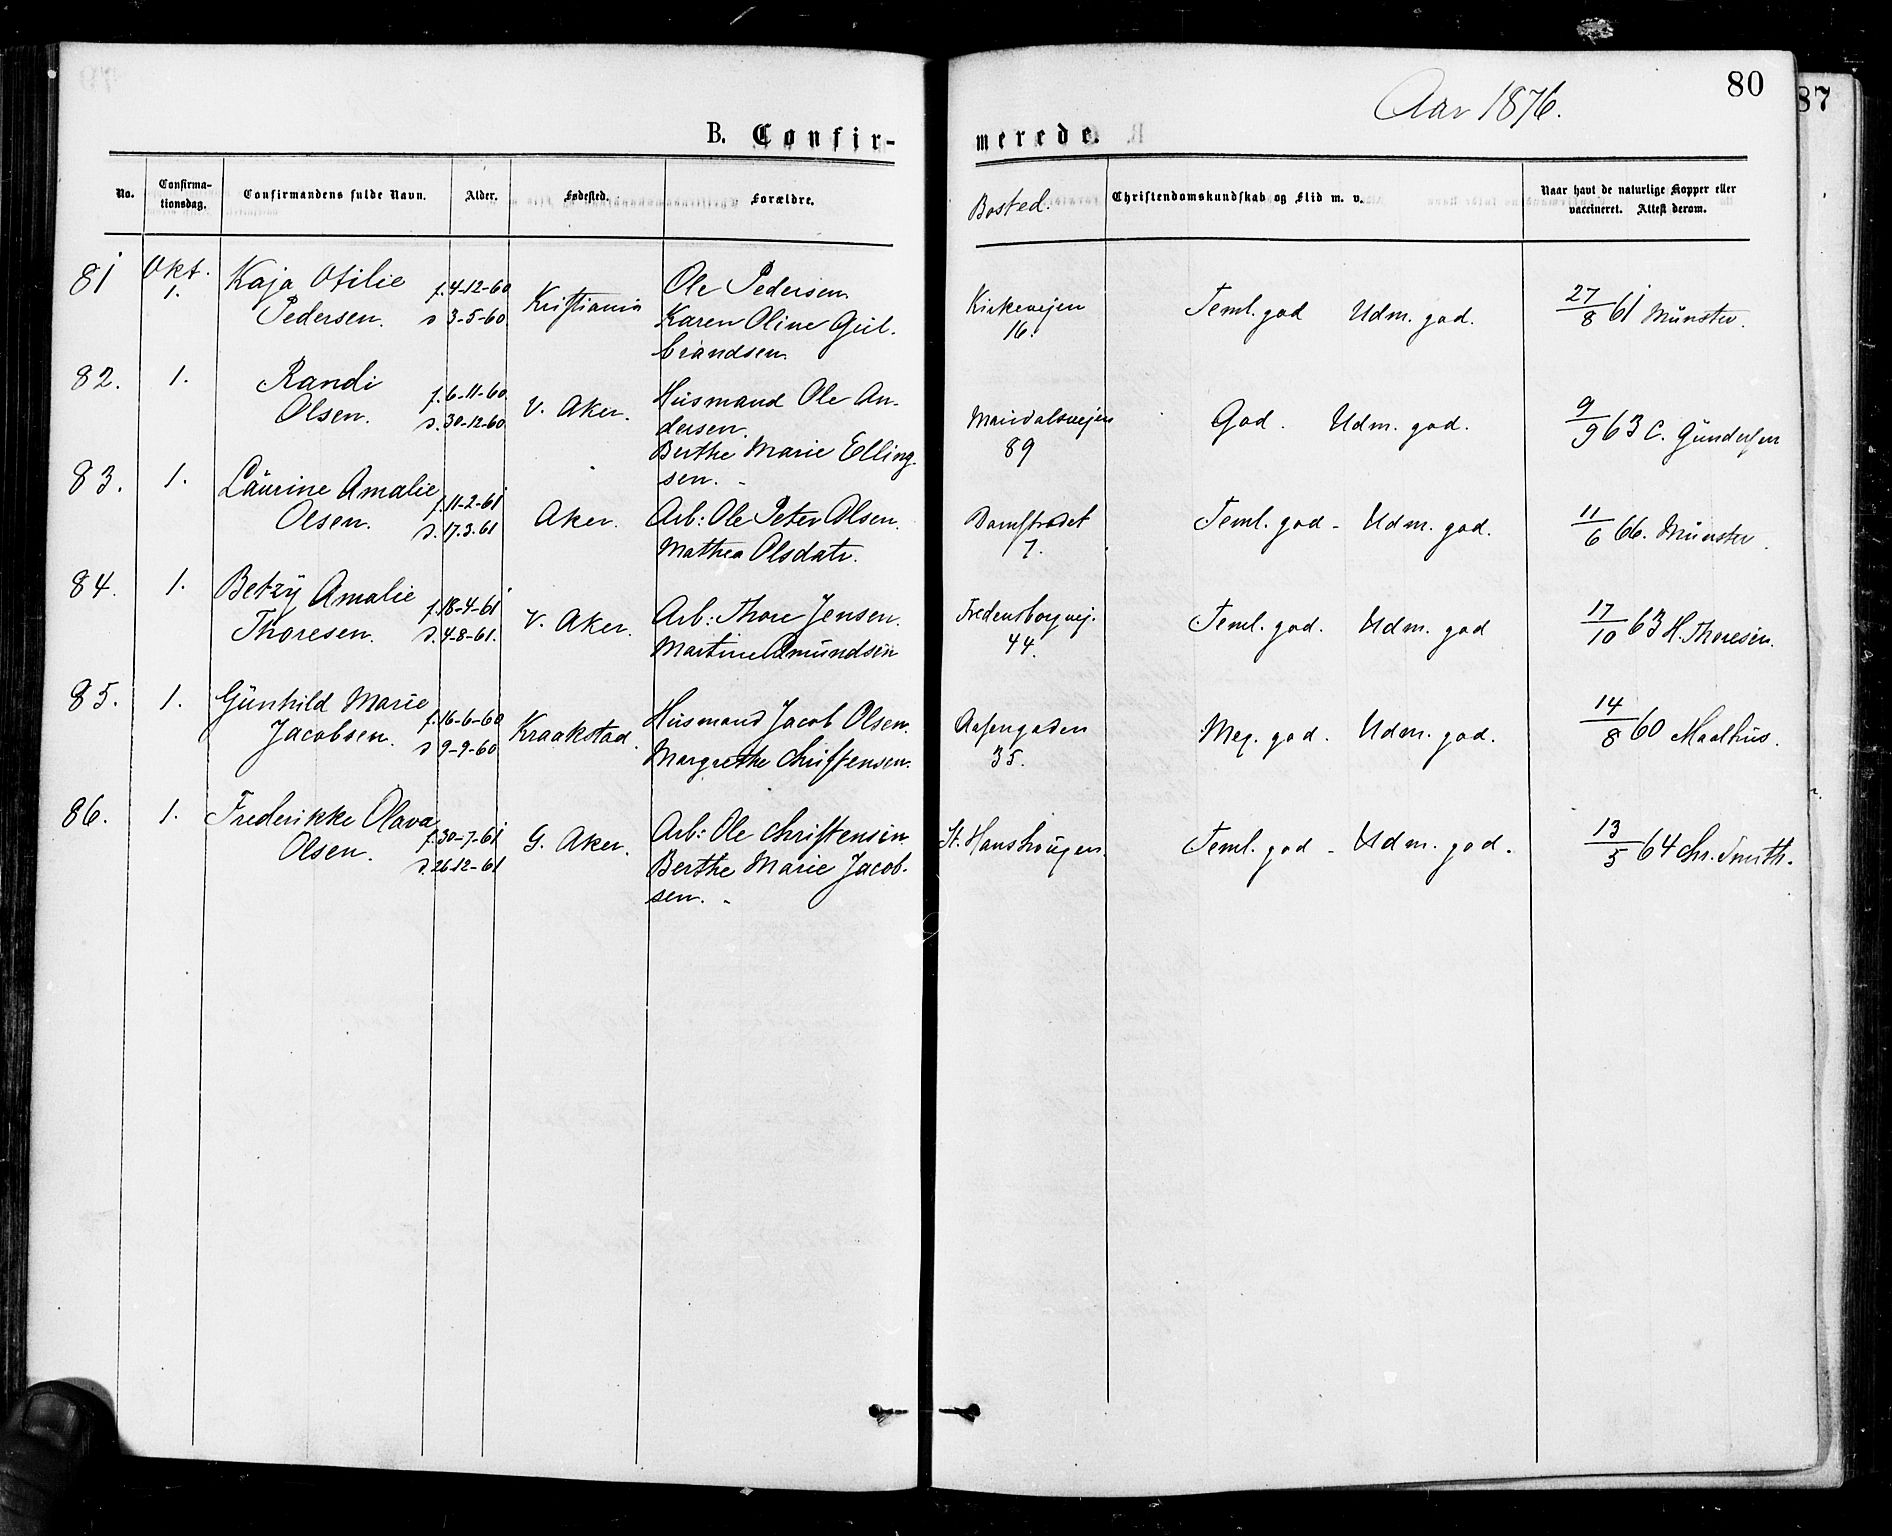 80
87
Aar 1876.
B. Confir-
merede.
No.
Confirma-
tionsdag.
Confirmandens fulde Navn.
Alder.
Fødested.
Forældre.
Bosted.
Christendomskundskab og Flid m. v.
Naar havt de naturlige Kopper eller
vaccineret. Attest derom.
81 Okt. 1. Kaja Otilie Pedersen. f. 4-12-60 d 3-5-60 Kristiania Ole Pedersen. Karen Oline Gul-brandsen. Kirkevejen 16. Teml. god Udm. god. 27/8 61 Münster.
82. 1. Randi Olsen. f. 6-11-60. d. 30-12-60 V. Aker. Husmand Ole An-dersen. Berthe Marie Elling-sen. - Maridalsvejen 89 God. Udm. god. 9/9 63 C. Gundersen
83. 1. Laurine Amalie Olsen. f. 11-2-61 d. 17.3.61 Aker. Arb: Ole Peter Olsen. Mathea Olsdatr. Damstrædet 7. Teml. god - Udm. god. 11/6 66. Münster.
84. 1. Betzy Amalie Thoresen. f. 18-4-61 d. 4-8-61. V. Aker. Arb: Thore Jensen. Martine Amundsen Fredensborgvej. 44. Teml. god. Udm. god 17/10 63 H. Thoresen.
85. 1. Gunhild Marie Jacobsen. f. 16-6-60 d 9-9-60 Kraakstad. Husmand Jacob Olsen. Margrethe Christensen. Aasengaden 35. Meg. god. Udm. god. 14/8 60 Maalhus.
86. 1. Frederikke Olava Olsen. f. 30-7-61 d. 26-12-61 G. Aker. Arb: Ole Christensen. Berthe Marie Jacob-sen. - St. Hanshaugen. Teml. god - Udm. god. 13/5 64 Chr. Smith.